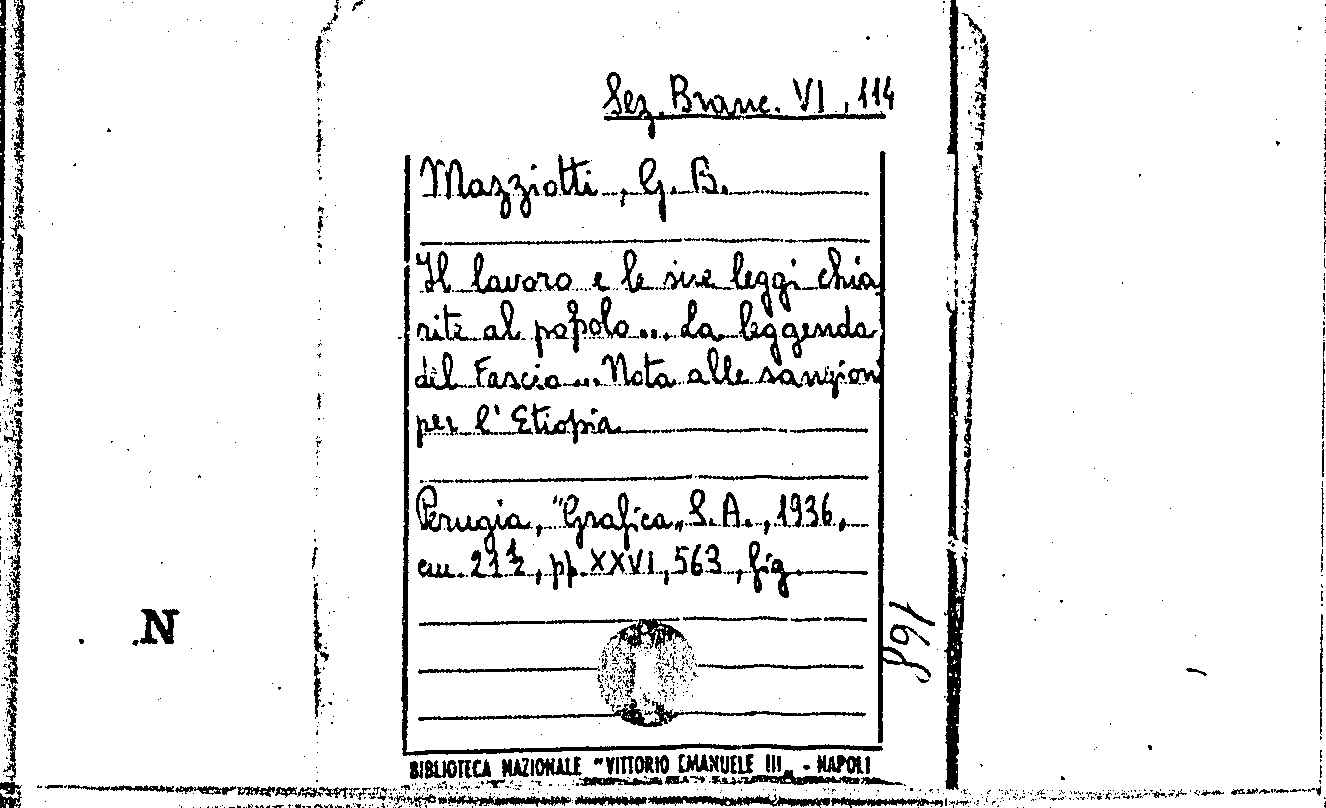 Sez. Branc. VI, 114
Mazziotti, G. B.
Il lavoro e le sue leggi chia
rite al popolo... La leggenda
del Fascio... Nota alle sanzioni
per l'Etiopia
Perugia, "Grafica„ S. A., 1936,
cm. 21½, pp. XXVI, 563, fig.
168
N
BIBLIOTECA NAZIONALE "VITTORIO EMANUELE III„ - NAPOLI